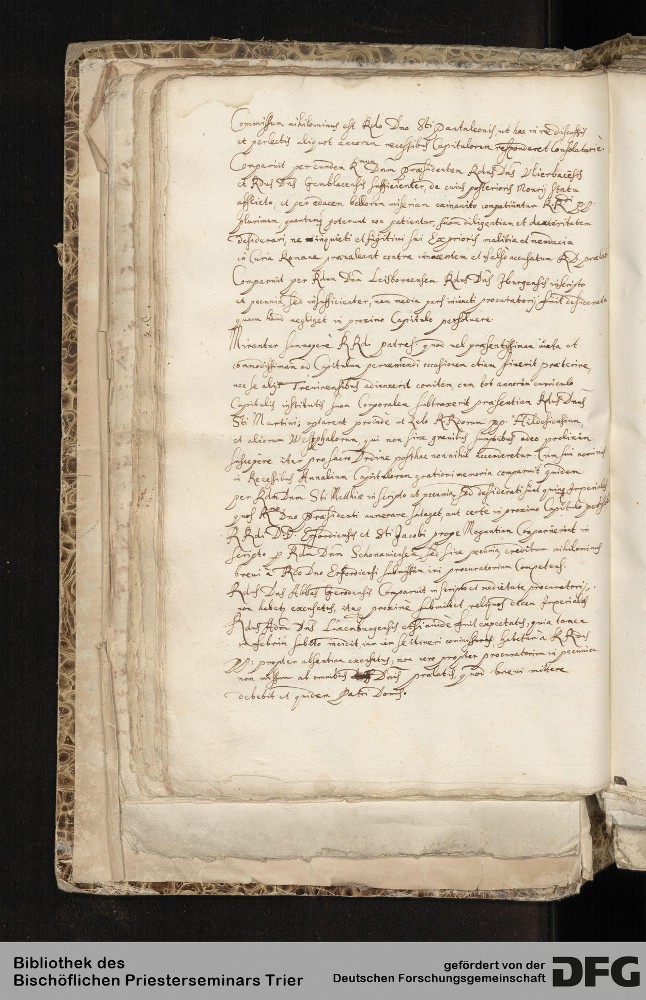 Commissum nihilominus est Rdo Dno Sti Pantaleonis, ut hac in re discussis
et perlectis aliquot annorum recessibus Capitulorum responderet Consolatorie
Comparuit per eundem Rmum Dnum præsidentem Rdus Dns
et Rdus Dns Gemblacensis sufficienter, de cuius posterioris Monrij statu
afflicto, et per edacem bellorum miseriam exinanito compatiuntur R.Rdi PP
plurimum, quantum poterunt non patientur, suam diligentiam et dexteritatem
desiderari, ne inquieti et fugitivi sui Exprioris malitia et
in Curia Romana prævaleant contra innocentem et falso accusatum RD. præ
Comparuit per Rdum Dnum Leisbornensem Rdus Dns Iburgensis inscripto
et pecunia, sed insufficienter, nam media pars procuratorij fuit desiderata
quam haud negliget in proximo Capitulo persolvere.
Mirantur summopere R.Rdi patres quod vel præsentissimam
commodissimam ad Capitulum perveniendi occasionem etiam siverit præterire,
nec se alijs Trevirensibus adiunxerit comitem cum tot annorum curriculo
Capitularis institutis suam Corporalem subtraxerit præsentiam Rdus Dnus
Sti Martini; optarent proinde ut zelo RRdorum pp. Hildesiensium,
et aliorum Westphalorum, qui non sine gravibus sumptibus adeo prolixum
suscepere iter pro sacro Ordine posthac nonnihil accenderetur Cum sui nominis
in Recessibus Annalium Capitulorum gratiori memoria comparuit quidem
per Rdum Dnum Sti Mathiæ in scripto et pecunia, sed desiderati sunt quinque Imperiales
quos Rmo Dno Præsidenti numerare sataget, aut certe in proximo Capitulo
R.Rdi D.D. Erfordiensis et Sti Jacobi prope Moguntiam Comparuerunt in
scripto p Rdum Dnum Schonaviensem, sed sine pecunia, creditur nihilominus
brevi a Rdo Dno Erfordiensi submissum iri procuratorium Competens.
Rdus Dns Abbas Gerodensis Comparuit in scripto et medietate procuratorij,
non habetur excusatus, itaque proxime submittet reliquos decem Imperiales
Rdus Adm Dns Luxemburgensis etsi avide fuit expectatus, quia tamen
in febrim subito incidit, cum iam se itineri commisisset, habetur a RRdis
PP. propter absentiam excusatus, non vero propter procuratorium in pecunia
non missum ab omnibus Dnis prælatis, quod brevi mittere
debebit et quidem Patri Domus.
Bibliothek des
Bischöflichen Priesterseminars Trier
gefördert von der
Deutschen Forschungsgemeinschaft
DFG